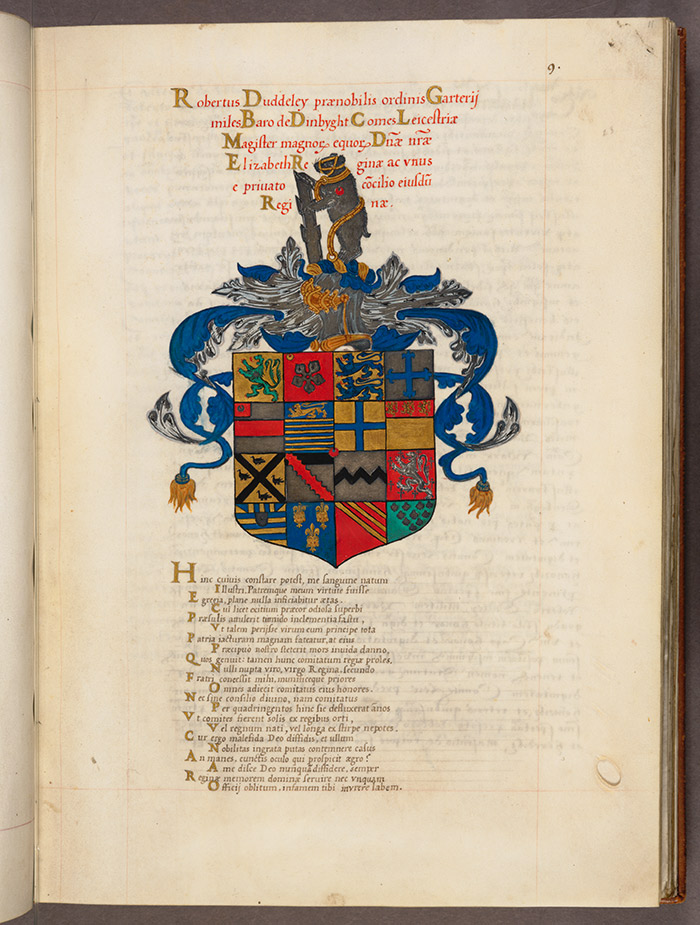 9.
Robertus Duddeley prænobilis ordinis Garterij
miles Baro de Dinbyght Comes Leicestriæ
Magister magnoꝝ equoꝝ Dn̄æ nr̄æ
Elizabeth Reginæ ac vnus
e priuato cōcilio eiusdū
Reginæ.
Hinc cuiuis constare potest, me sanguine natum
Illustri, Patremque meum virtute fuisse
Egregia, plane nulla inficiabitur ætas.
Cui licet exitium præcox odiosa superbi
Præsulis attulerit timido inclementia fastu,
Vt talem perijsse virum cum principe tota
Patria iacturam magnam fateatur, ac eius
Præcipuo nostro steterit mors inuida damno,
Quos genuit: tamen hunc comitatum regia proles,
Nulli nupta viro, virgo Regina, secundo
Fratri concessit mihi, munificeque priores
Omnes adiecit comitatus eius honores.
Nec sine consilio diuino, nam comitatus
Per quadringentos hinc sic defluxerat ānos
Vt comites fierent solis ex regibus orti,
Vel regnum nati, vel longa ex stirpe nepotes.
Cur ergo malefida Deo diffidis, et illum
Nobilitas ingrata putas contemnere casus
An manes, cunctis oculo qui prospicit ægro?
A me disce Deo nunquā diffidere, semper
Reginæ memorem dominæ seruire nec vnquam
Officij oblitum, infamem tibi inurere labem.